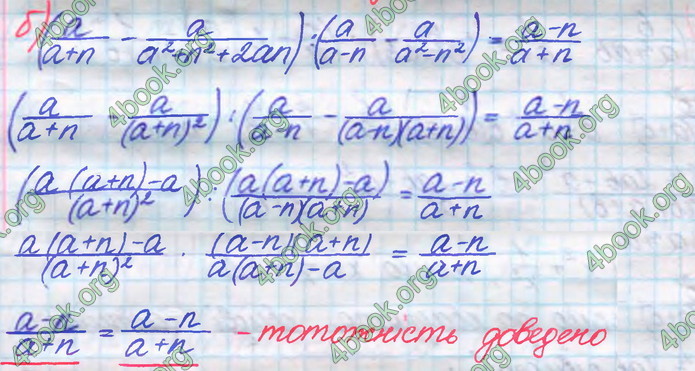 б) (a/(a+n) - a/(a²+n²+2an)) : (a/(a-n) - a/(a²-n²)) = (a-n)/(a+n)
(a/(a+n) - a/(a+n)²) : (a/(a-n) - a/((a-n)(a+n))) = (a-n)/(a+n)
((a(a+n)-a)/(a+n)²) : ((a(a+n)-a)/((a-n)(a+n))) = (a-n)/(a+n)
(a(a+n)-a)/(a+n)² · ((a-n)(a+n))/(a(a+n)-a) = (a-n)/(a+n)
(a-n)/(a+n) = (a-n)/(a+n) - тотожність доведено
4book.org